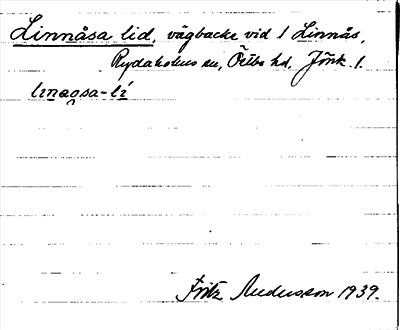 Linnåsa lid, vägbacke vid 1 Linnås,
Rydaholms sn, Östbo hd, Jönk. l.
linagsa-lí
Fritz Andersson 1939.